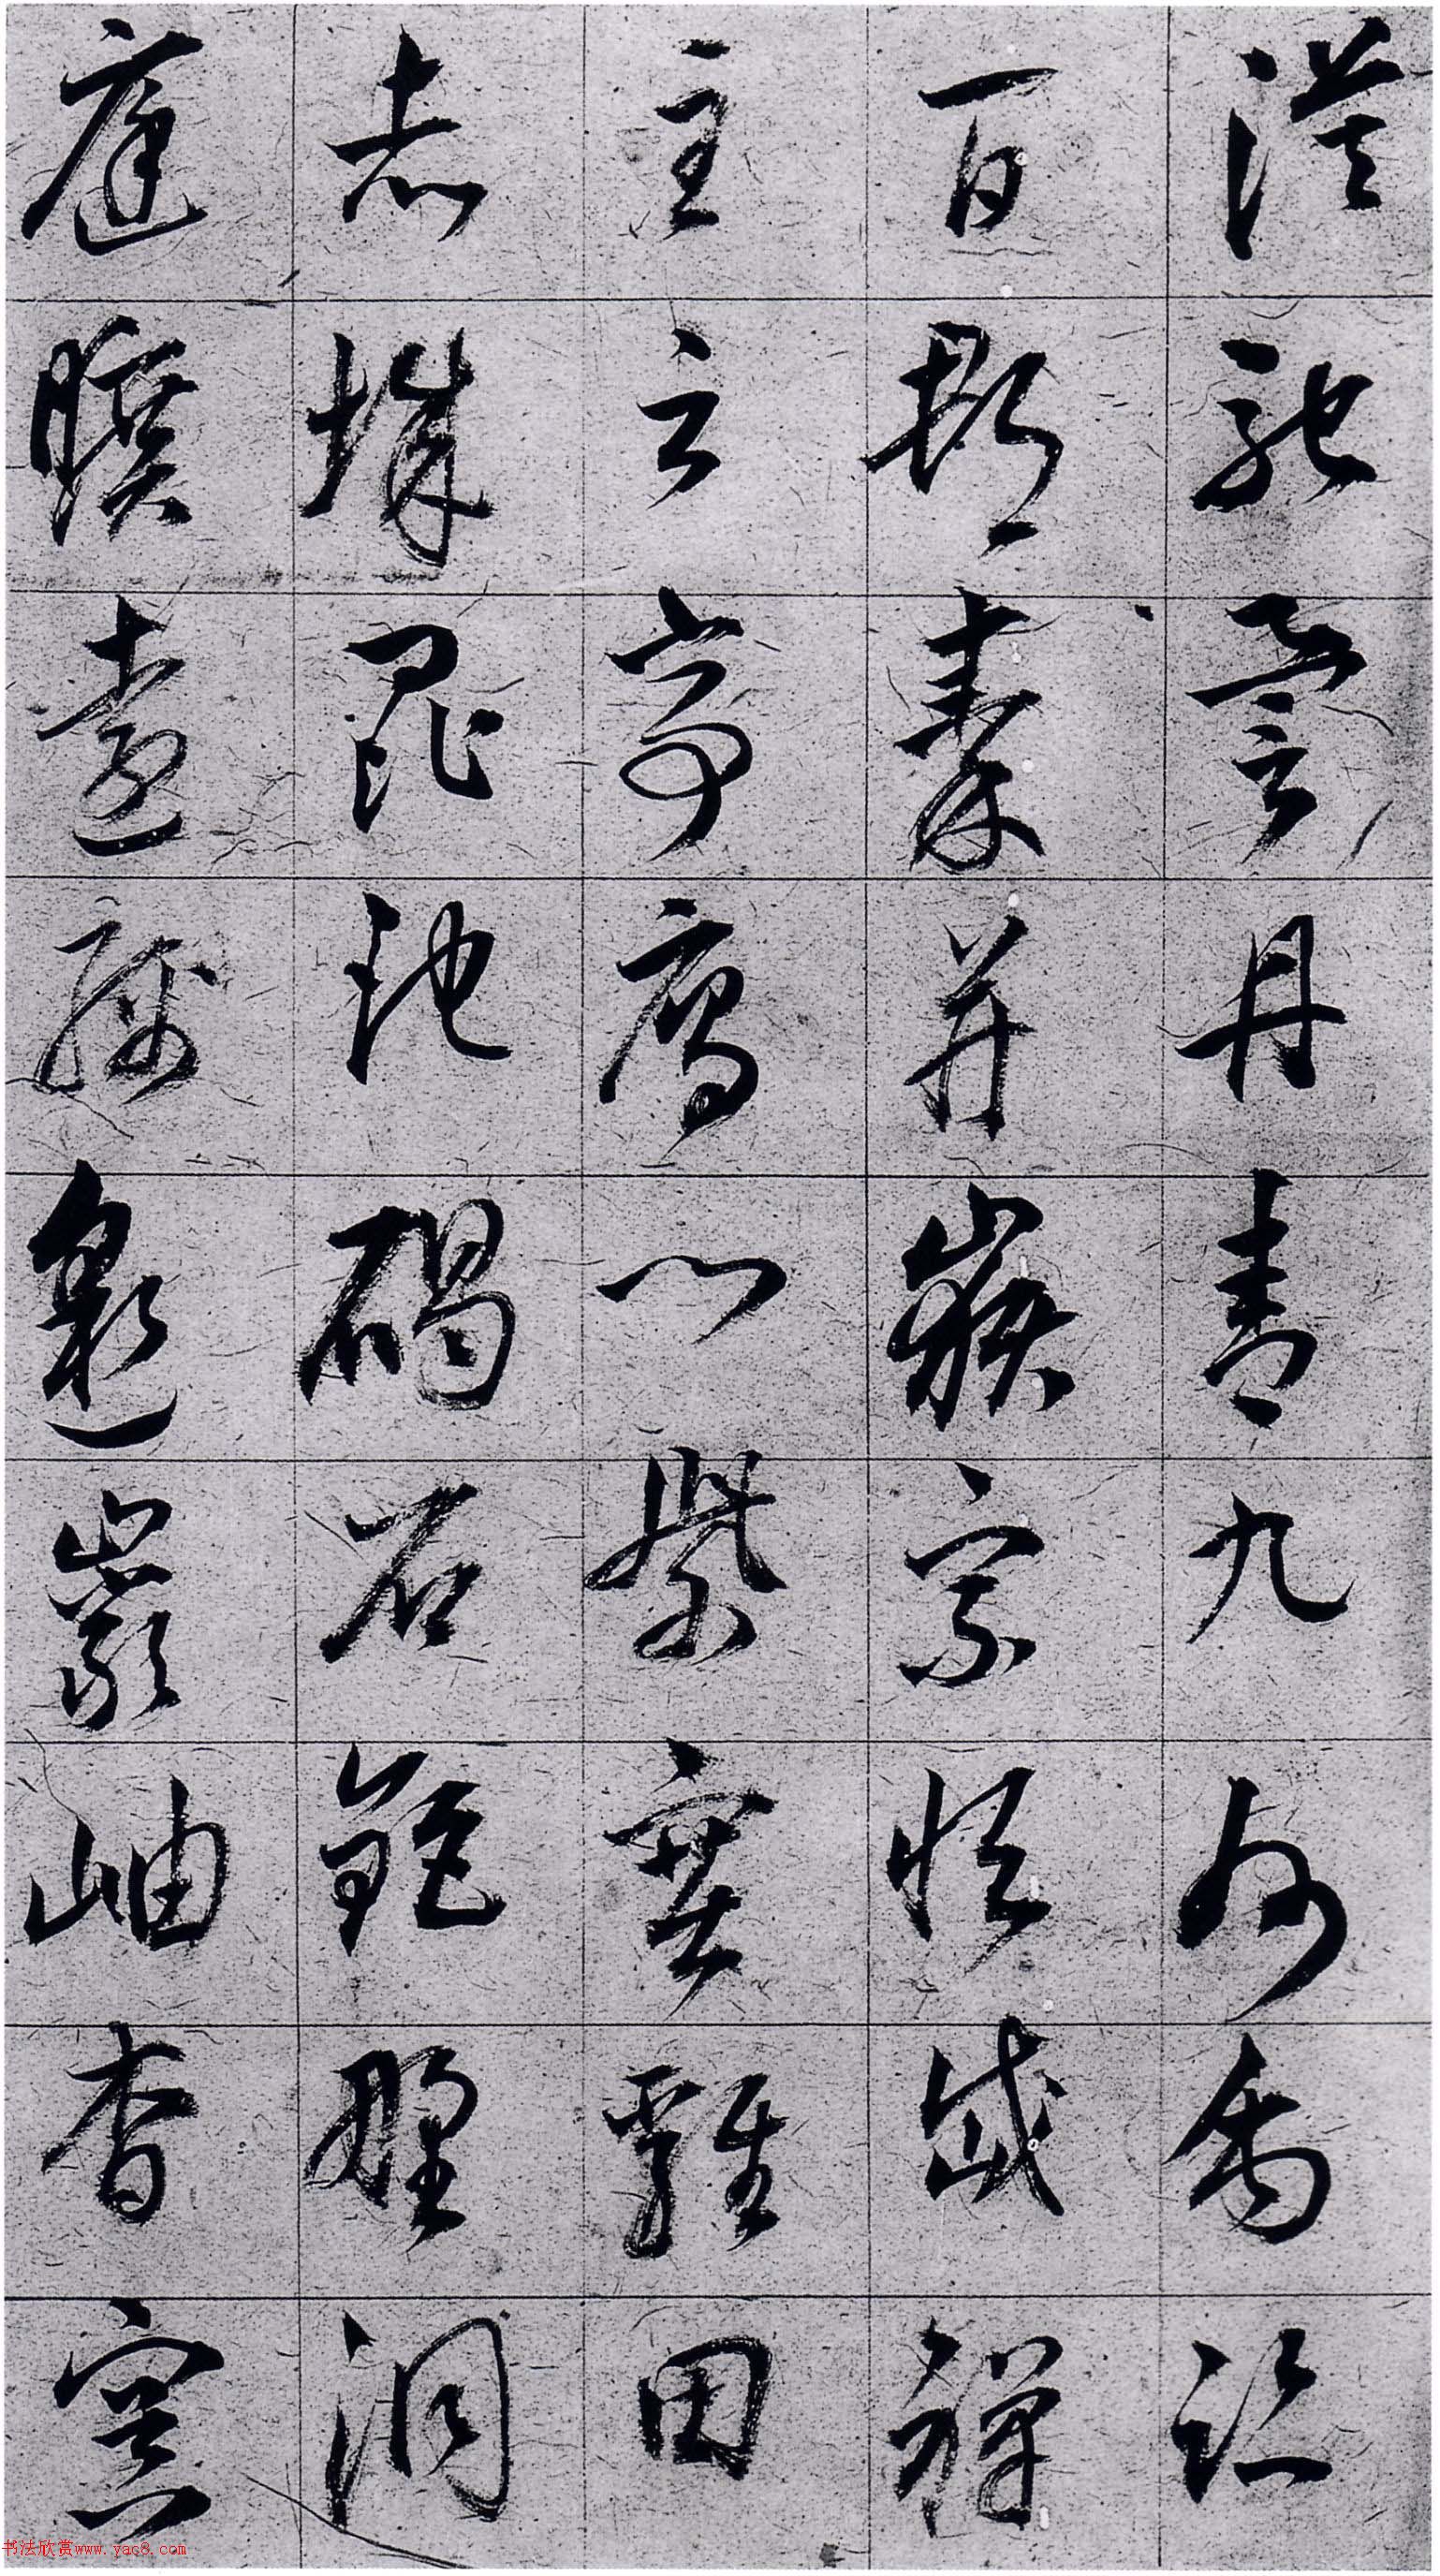 漠馳譽丹青九州禹跡
百郡秦并嶽宗恒岱禪
主云亭鴈門紫塞雞田
赤城昆池碣石鉅野洞
庭曠遠綿邈巖岫杳冥
书法欣赏www.yac8.com